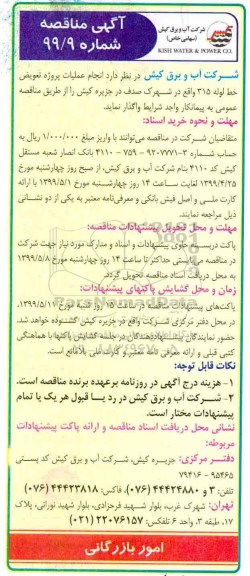 آگهی مناقصه
شماره ۹۹/۹
شرکت آب و برق کیش
(سهامی خاص)
KISH WATER & POWER CO.
شرکت آب و برق کیش در نظر دارد انجام عملیات پروژه تعویض
خط لوله ۳۱۵ واقع در شهرک صدف در جزیره کیش را از طریق مناقصه
عمومی به پیمانکار واجد شرایط واگذار نماید.
مهلت و نحوه خرید اسناد:
متقاضیان شرکت در مناقصه می‌توانند با واریز مبلغ ۱/۰۰۰/۰۰۰ ریال به
حساب شماره ۳-۹۲۰۷۷۷۱ - ۷۵۹ - ۴۱۱۰ بانک انصار شعبه مستقل
کیش کد ۴۱۱۰ بنام شرکت آب و برق کیش، از صبح روز چهارشنبه مورخ
۱۳۹۹/۴/۲۵ لغایت ساعت ۱۴ روز چهارشنبه مورخ ۱۳۹۹/۵/۱ با ارائه
کارت ملی و اصل فیش بانکی و معرفی‌نامه معتبر به یکی از دو نشانی
ذیل مراجعه نمایند.
مهلت و محل تحویل پیشنهادات مناقصه:
پاکت دربسته حاوی پیشنهادات و اسناد و مدارک مورد نیاز جهت شرکت
در مناقصه می‌بایستی حداکثر تا ساعت ۱۴ روز چهارشنبه مورخ ۱۳۹۹/۵/۸
به محل دریافت اسناد مناقصه تحویل گردد.
زمان و محل گشایش پاکتهای پیشنهادات:
پاکت‌های پیشنهادات مناقصه در ساعت ۱۵ روز شنبه مورخ ۱۳۹۹/۵/۱۱
در محل دفتر مرکزی شرکت واقع در جزیره کیش گشوده خواهد شد.
حضور نمایندگان پیشنهاددهندگان در جلسه گشایش پاکتها با هماهنگی
کتبی قبلی و ارائه معرفی نامه معتبر و کارت ملی بلامانع است.
نکات قابل توجه:
۱- هزینه درج آگهی در روزنامه برعهده برنده مناقصه است.
۲- شرکت آب و برق کیش در رد یا قبول هر یک یا تمام
پیشنهادات مختار است.
نشانی محل دریافت اسناد مناقصه و ارائه پاکت پیشنهادات
مربوطه:
دفتر مرکزی: جزیره کیش، شرکت آب و برق کیش کد پستی
۹۵۴۶۵ - ۷۹۴۱۶
تلفن: ۳ و ۴۴۴۲۴۸۸۰ (۰۷۶)، فاکس: ۴۴۴۲۳۸۱۸ (۰۷۶)
تهران: شهرک غرب، بلوار شهید فرحزادی، بلوار شهید نورانی، پلاک
۱۷، طبقه ۳، واحد ۶ تلفکس: ۲۲۰۷۶۱۵۷ (۰۲۱)
امور بازرگانی